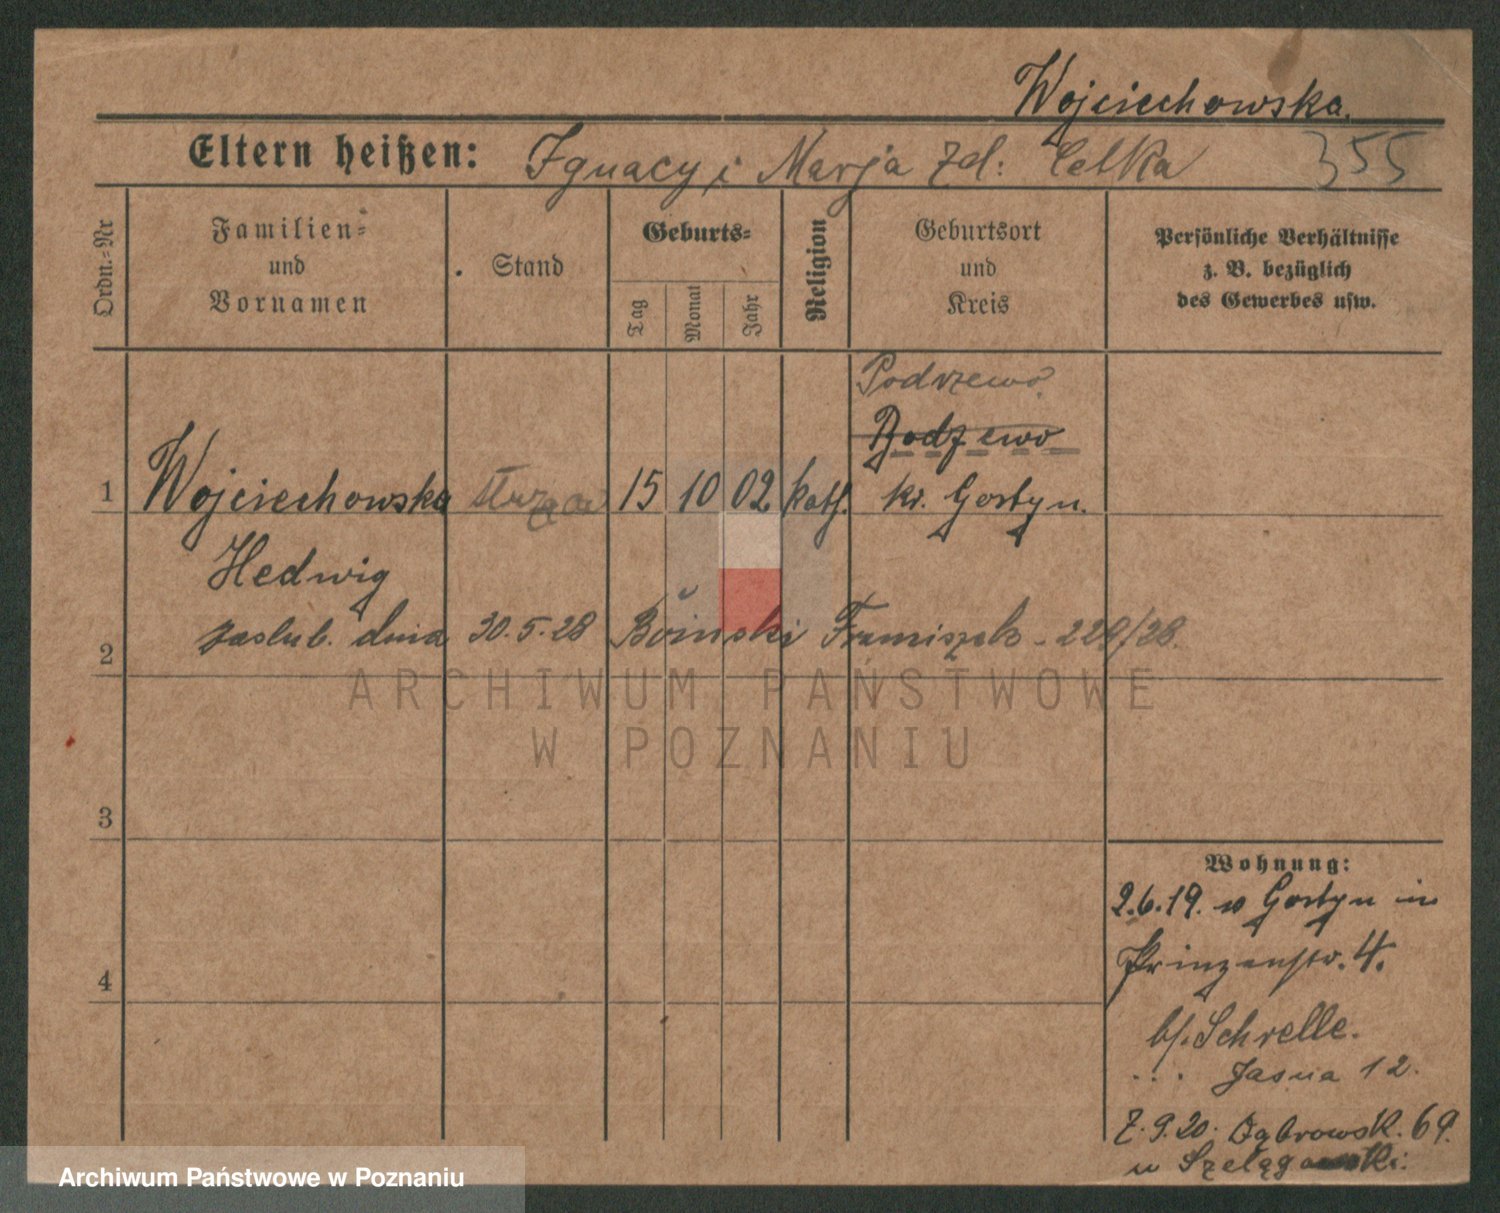 Wojciechowska.
Eltern heißen: Ignacy i Marja zd: Celka 355
Ordn.-Nr
Familien-
und
Vornamen
Stand
Geburts-
Tag
Monat
Jahr
Religion
Geburtsort
und
Kreis
Persönliche Verhältnisse
z. B. bezüglich
des Gewerbes usw.
Podrzewo
Bodzewo
1 Wojciechowska 15 10 02. kath. kr. Gostyn.
Hedwig
2 zaslub. dnia 30.5.28 Franciszek - 229/28.
3
4
Wohnung:
2.6.19. w Gostyn in
Prinzenstr. 4.
bf. Schrelle.
Jasna 12.
7.9.20. Dąbrowsk. 69.
u
ARCHIWUM PAŃSTWOWE
W POZNANIU
Archiwum Państwowe w Poznaniu